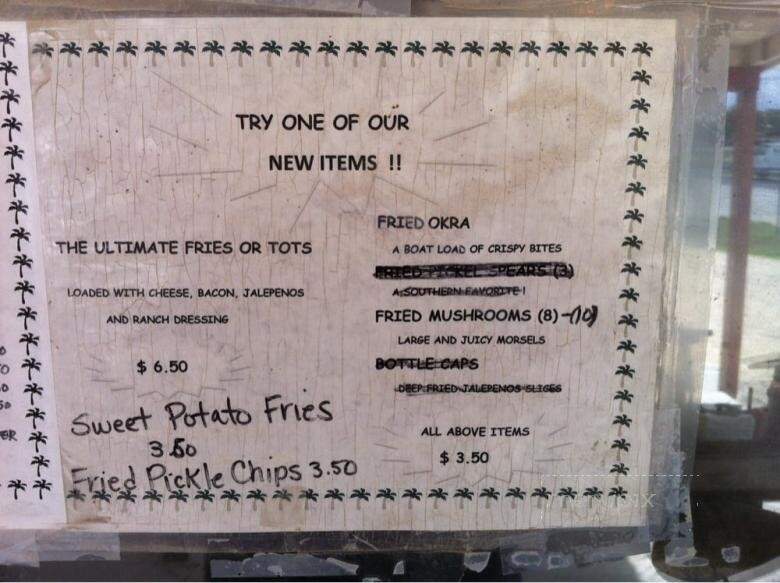 TRY ONE OF OUR
NEW ITEMS !!
THE ULTIMATE FRIES OR TOTS
LOADED WITH CHEESE, BACON, JALEPENOS
AND RANCH DRESSING
$ 6.50
Sweet Potato Fries
3.50
Fried Pickle Chips 3.50
FRIED OKRA
A BOAT LOAD OF CRISPY BITES
FRIED PICKEL SPEARS (3)
A SOUTHERN FAVORITE !
FRIED MUSHROOMS (8) -(10)
LARGE AND JUICY MORSELS
BOTTLE CAPS
DEEP FRIED JALEPENOS SLICES
ALL ABOVE ITEMS
$ 3.50